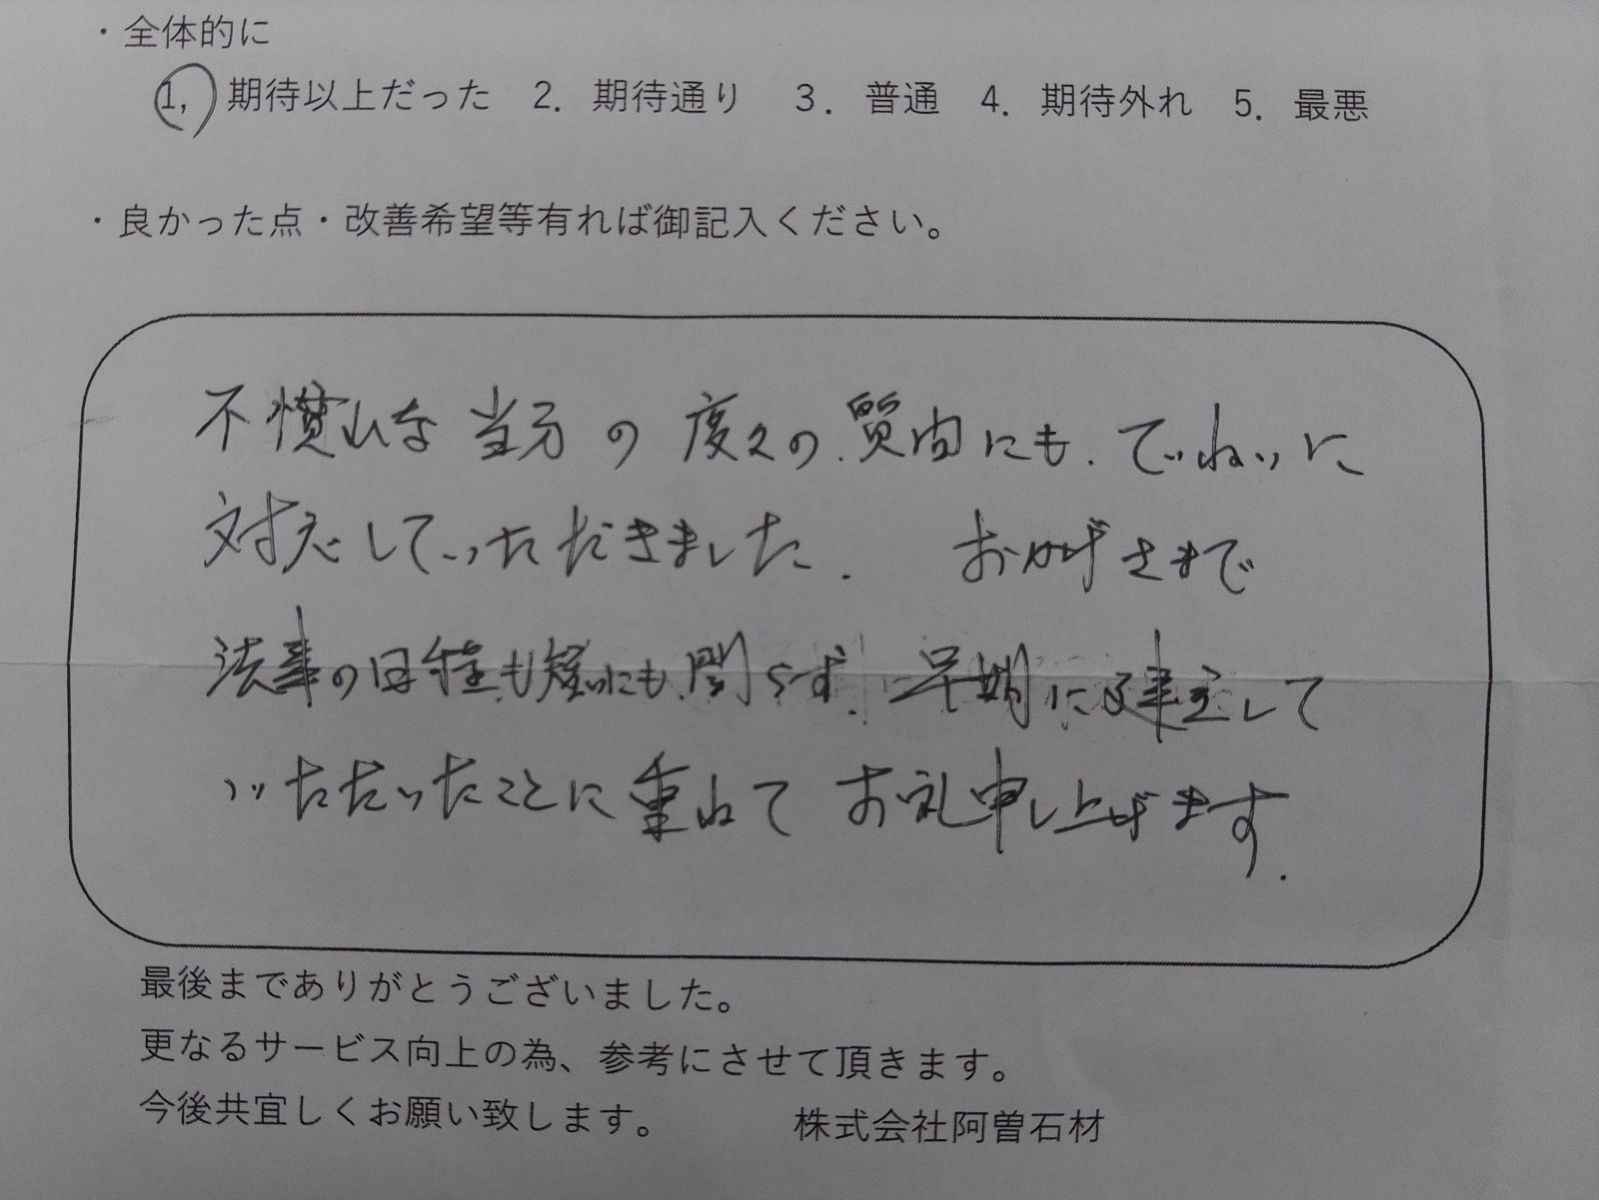 ・全体的に
1, 期待以上だった 2. 期待通り 3. 普通 4. 期待外れ 5. 最悪
・良かった点・改善希望等有れば御記入ください。
不慣れな当方の度々の質問にも、ていねいに
対応していただきました. おかげさまで
法事の日程も短いにも関らず、早期に建立して
いただいたことに重ねてお礼申し上げます.
最後までありがとうございました。
更なるサービス向上の為、参考にさせて頂きます。
今後共宜しくお願い致します。 株式会社阿曽石材